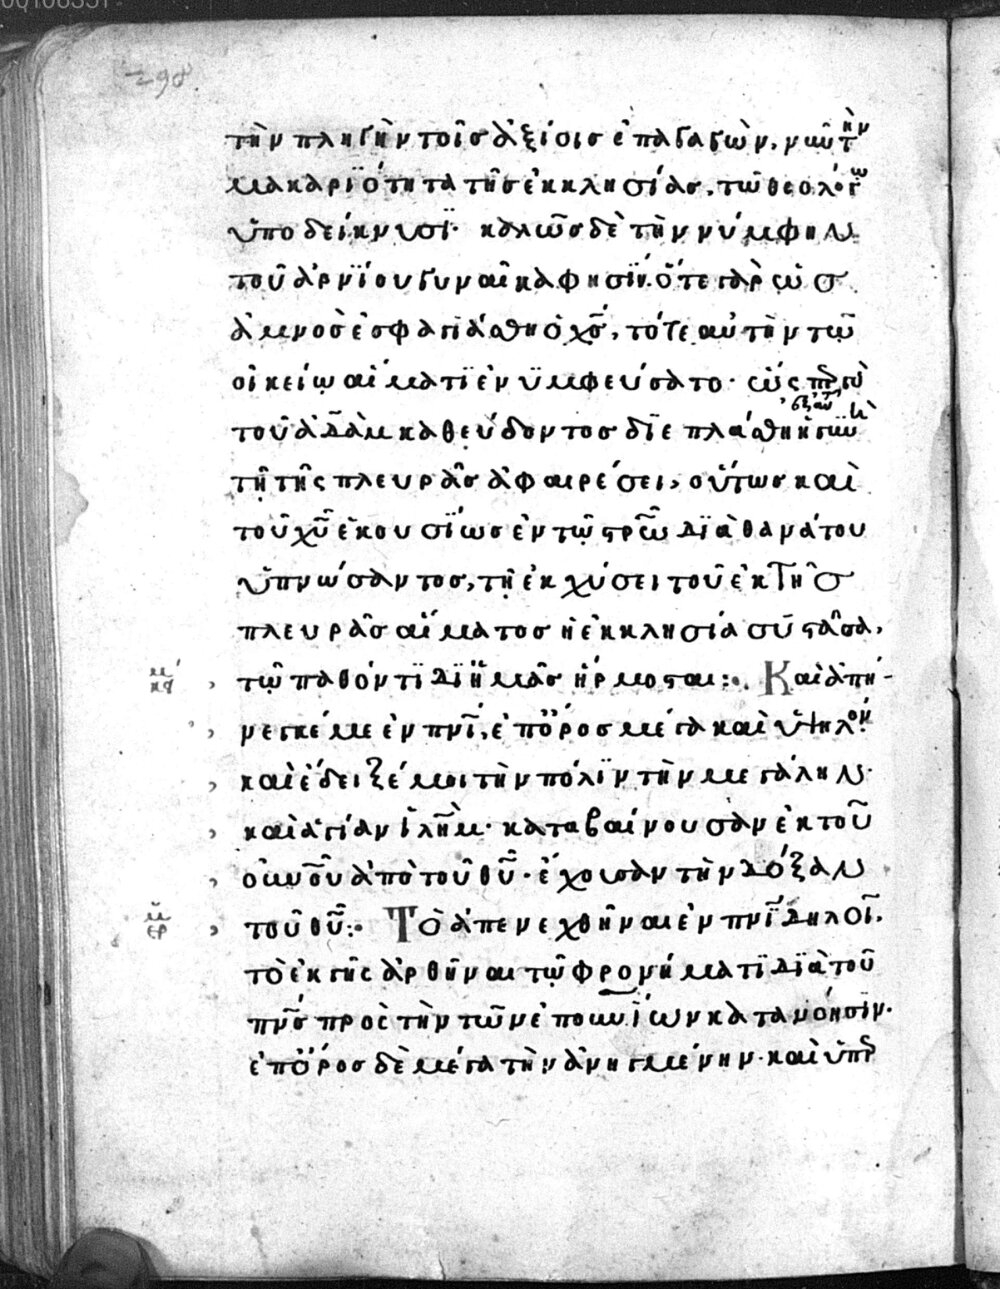 298
τὴν πληγὴν τοῖσ ἀξίοισ ἐπαγαγὼν, νῦν τὴν
μακαρϊότητα τῆσ ἐκκλησίασ, τῶ θεολόγω
ὑποδείκνυσϊ· καλῶσ δὲ τὴν νύμφην
τοῦ ἀρνΐου γυναῖκα φησΐν. ὅτε γὰρ ὡσ
ἀμνοσ ἐσφαγιάσθη ὁ χσ̅, τότε αὐτὴν τῶ
οἰκείω αἵματϊ ἐνϋμφεύσατο· ὡς περ γὰρ
τοῦ ἀδὰμ καθεύδοντοσ δϊεπλάσθη ἡ γυνὴ
ἐξ αὐτοῦ
τῆ τῆς πλευρᾶσ ἀφαιρέσει, οὕτως καὶ
τοῦ χυ̅ ἑκουσΐωσ ἐν τῶ στρω̅ δϊὰ θανάτου
ὑπνώσαντοσ, τῆ ἐκχύσει τοῦ ἐκ τῆσ
πλευρᾶσ αἵματοσ ἡ ἐκκλησία συστᾶσα,
τῶ παθόντϊ δϊ ἡμᾶσ ἥρμοσται:· Καὶ ἀπή-
νεγκέ με ἐν πνϊ̅, ἐπ ὄροσ μέγα καὶ ὑψηλὸν·
καὶ ἔδειξέ μοι τὴν πόλϊν τὴν μεγάλην·
καὶ ἁγίαν ἰλη̅μ· καταβαίνουσαν ἐκ τοῦ
οὐνου̅ ἀπὸ τοῦ θυ̅· ἔχουσαν τὴν δόξαν
τοῦ θυ̅:· Τὸ ἀπενεχθῆναι ἐν πνϊ̅ δηλοῖ,
τὸ ἐκ γῆς ἀρθῆναι τῶ φρονήματϊ δϊὰ τοῦ
πνσ̅ πρὸς τὴν τῶν ἐπουνΐων κατανόησϊν·
ἐπ ὄροσ δὲ μέγα τὴν ἀνηγμένην· καὶ ὑπὲρ